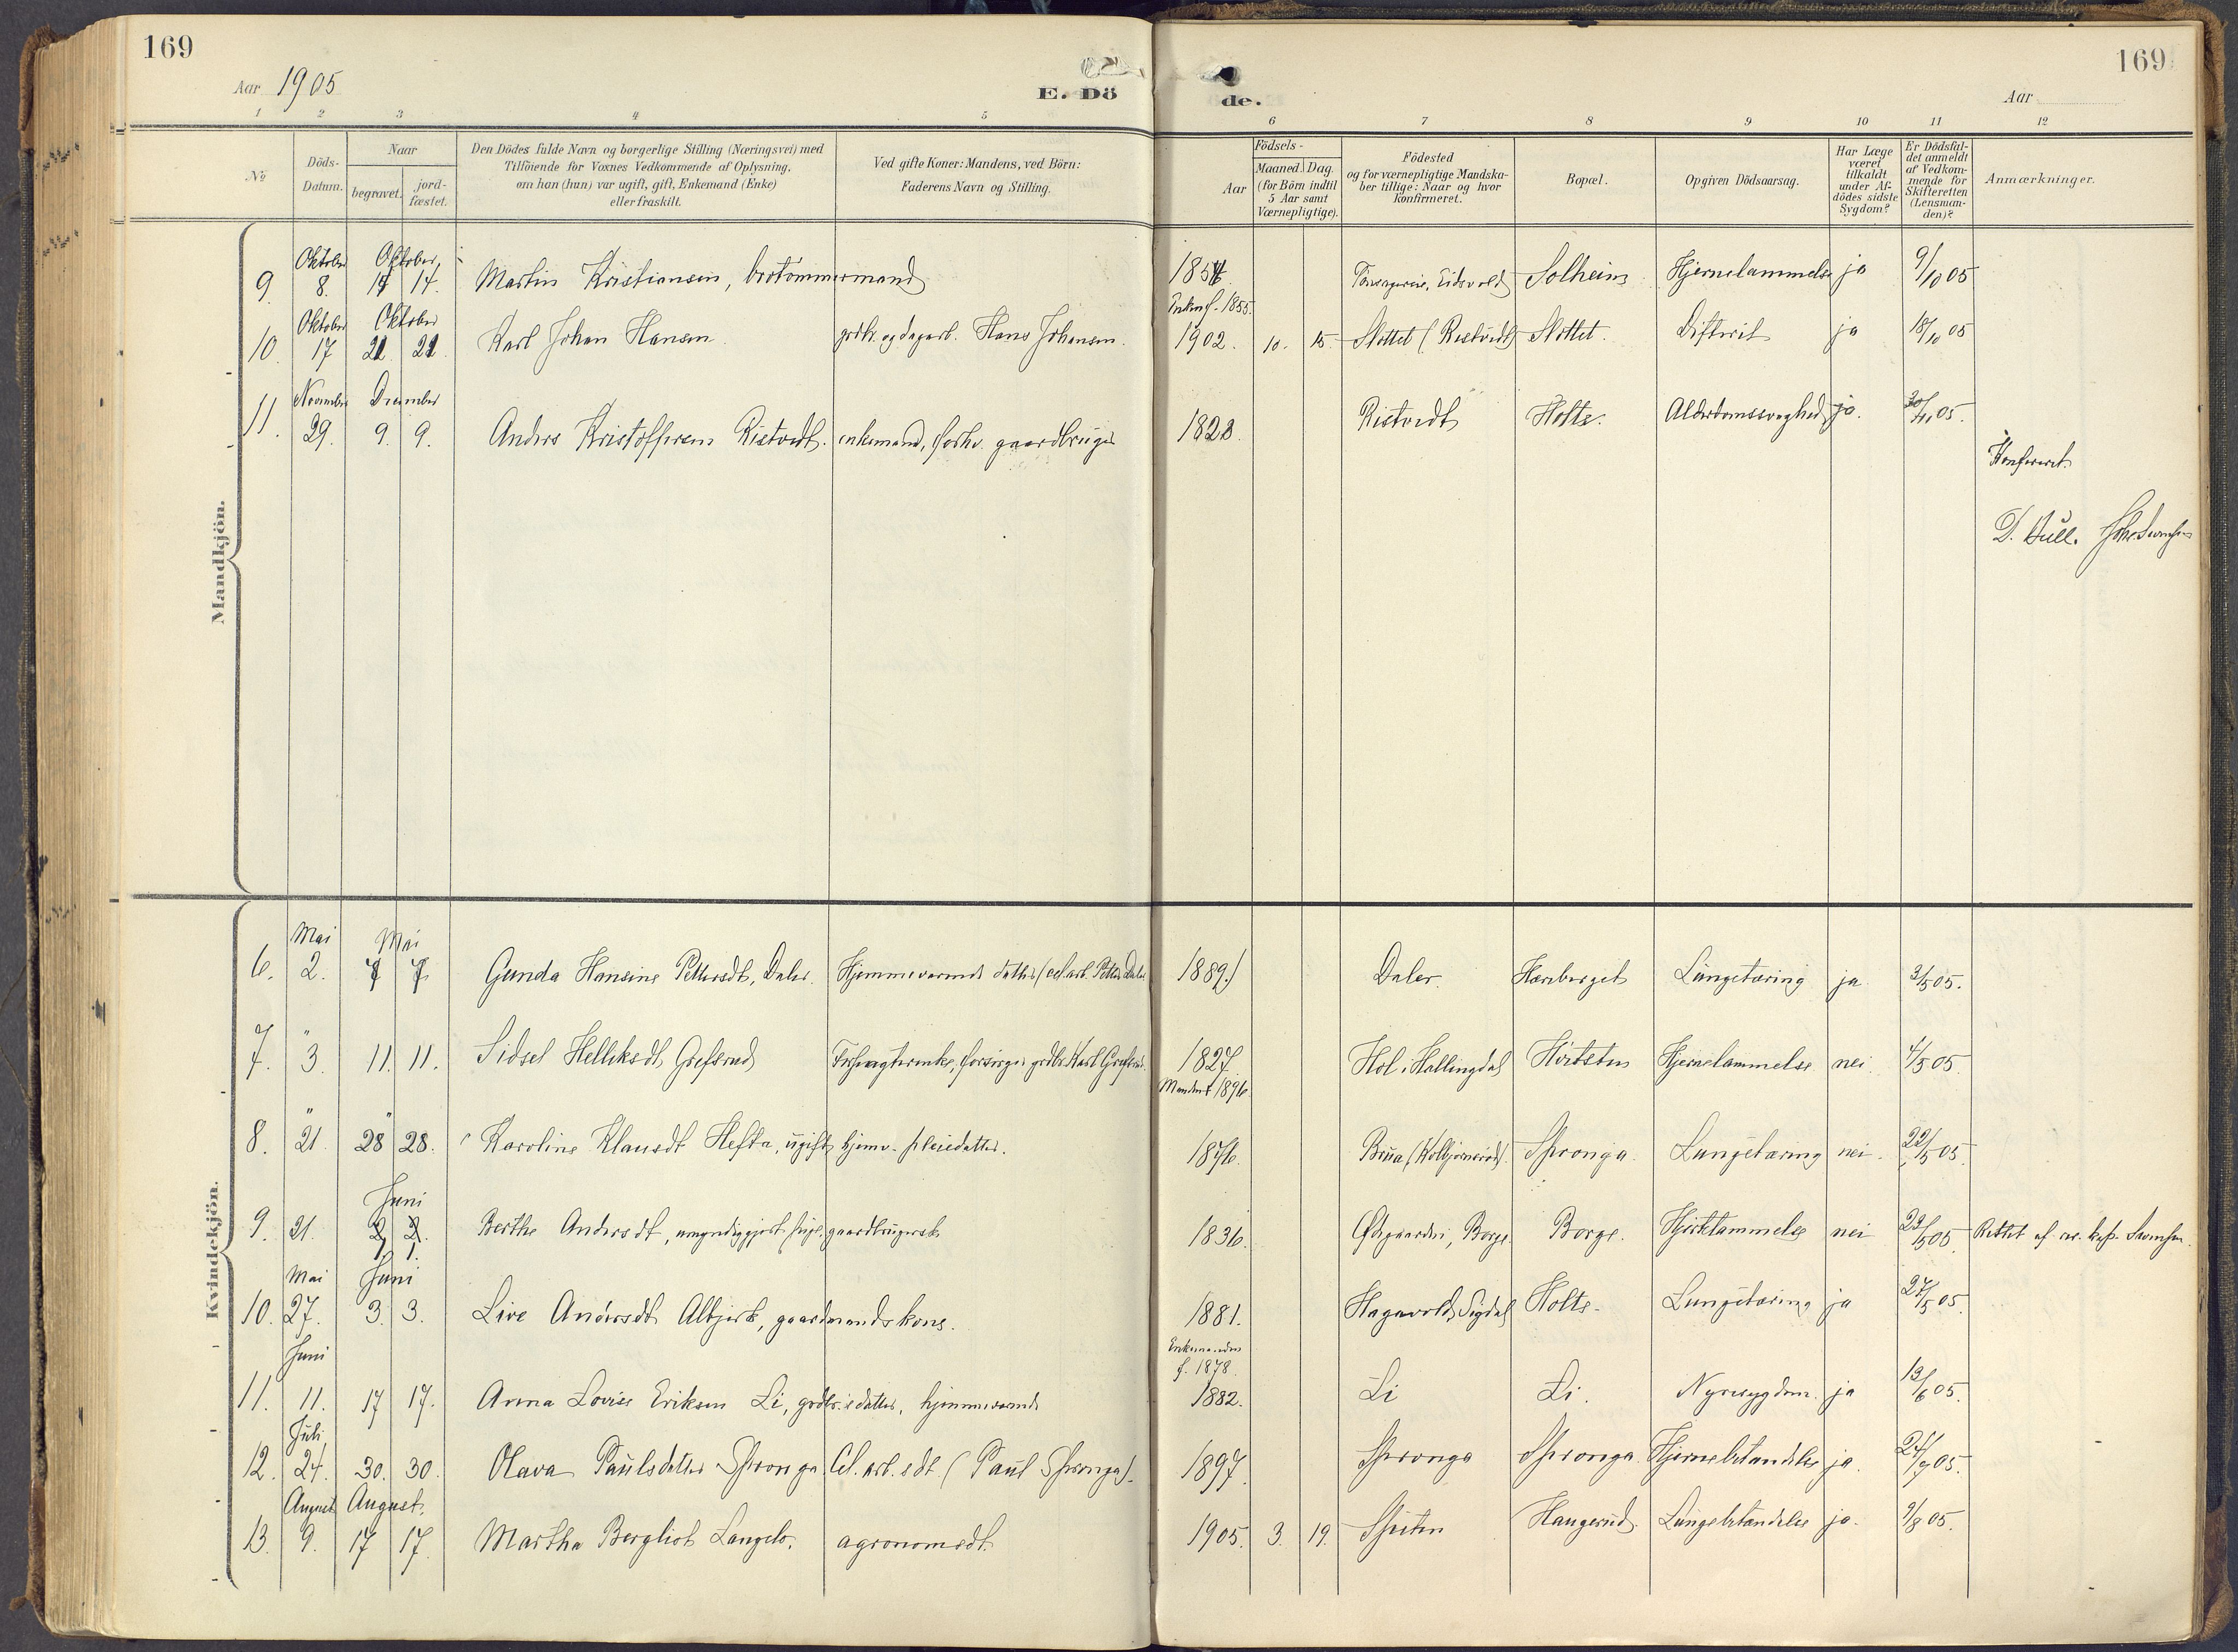 169
169
Aar 1905
E. Dö de.
Aar
1 2 3 4 5 6 7 8 9 10 11 12
№
Döds-Datum.
Naar
begravet.
jord-fæstet.
Den Dödes fulde Navn og borgerlige Stilling (Næringsvei) med
Tilföiende for Voxnes Vedkommende af Oplysning,
om han (hun) var ugift, gift, Enkemand (Enke)
eller fraskilt.
Ved gifte Koner: Mandens, ved Börn:
Faderens Navn og Stilling.
Födsels-
Aar
Maaned. Dag.
(for Börn indtil
5 Aar samt
Værnepligtige).
Födested
og for værnepligtige Mandska-
ber tillige: Naar og hvor
konfirmeret.
Bopæl.
Opgiven Dödsaarsag.
Har Læge
været
tilkaldt
under Af-
dödes sidste
Sygdom?
Er Dödsfal-
det anmeldt
af Vedkom-
mende for
Skifteretten
(Lensman-
den)?
Anmærkninger.
Mandkjön.
Oktober Oktober
9. 8. 14 14. Martin Kristiansen, brotömmermand 1854 Eidsvold Solheim Hjernelammelse ja 9/10 05
Enkens f. 1855.
Oktober Oktober
10. 17 21 21 Karl Johan Hansen grdbr. og dagarb. Hans Johansen. 1902. 10. 15. Slottet (Ristvedt) Slottet. Difterit ja 18/10 05
November December
11. 29. 9. 9. Anders Kristoffersen Ristvedt. enkemand, forhv. gaardbruger 1828. Ristvedt Holte. Alderdomssvaghed ja. 30/11 05.
Konfereret.
D. Bull.
Kvindekjön.
Mai Mai
6. 2. 7 7. Gunda Hansine Pettersdt. Daler. Hjemmeværende datter (cel.arb. Petter Daler 1889.) Daler. Hernberget Lungetæring ja 3/5 05.
7. " 3. 11. 11. Sidsel Helleksdt Grefsrud 1827. Hol i Hallingdal Hjernelammelse nei. 4/5 05
Mandens f 1896.
8. " 21 28 28. Karoline Klausdt Hefta, ugift, hjemv. pleiedatter. 1876. Brua (Kolbjørnsrud). Spronga. Lungetæring nei. 22/5 05.
Juni
9. 21. 2 2. Berthe Andersdt, umyndiggjort pige, gaardbrugersk. 1836. Ødegaarden, Borge Borge. Hjertelammelse nei 23/5 05. Rettet af
1. 1.
Mai Juni
10. 27. 3. 3. Live Andersdt Albjerk, gaardmandskone. 1881. Hagavold, Sigdal Holte. Lungetæring ja 27/5 05.
Enkemanden
f. 1878.
Juni
11. 11. 17 17. Anna Lovise Eriksen Li, grdbr.sdatter, hjemmeværende 1882. Li Li. Nyresygdom. ja 13/6 05.
Juli
12. 24. 30. 30. Olava Paulsdatter Spronga Cel. arb.sdt. (Paul Spronga). 1897. Spronga Spronga. Hjernebetændelse ja. 24/7 05.
August August.
13. 9. 17 17. Martha Bergliot Langelo. agronomsdt. 1905. 3. 19. Spiten Haugerud. Lungebetændelse ja. 9/8 05.